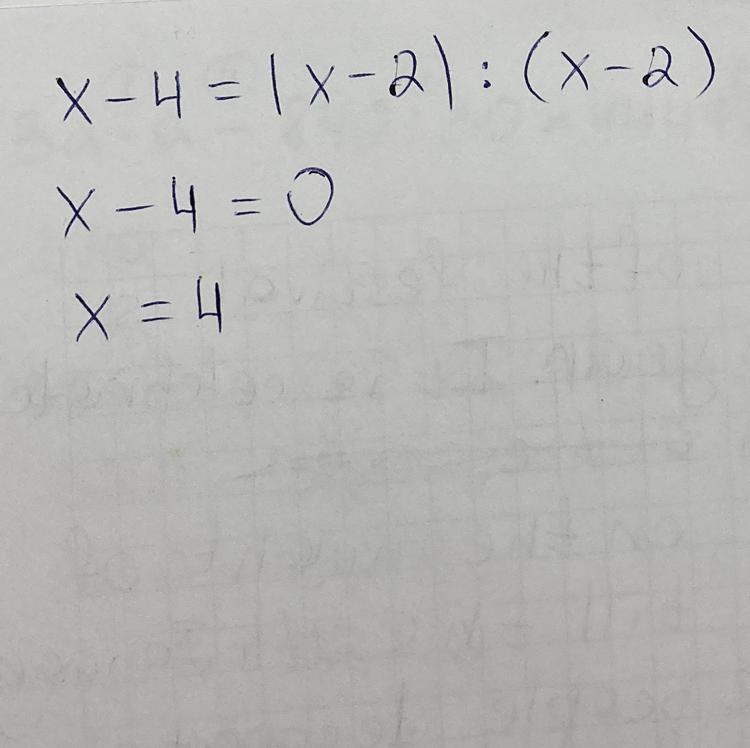 x - 4 = |x - 2| : (x - 2)
x - 4 = 0
x = 4